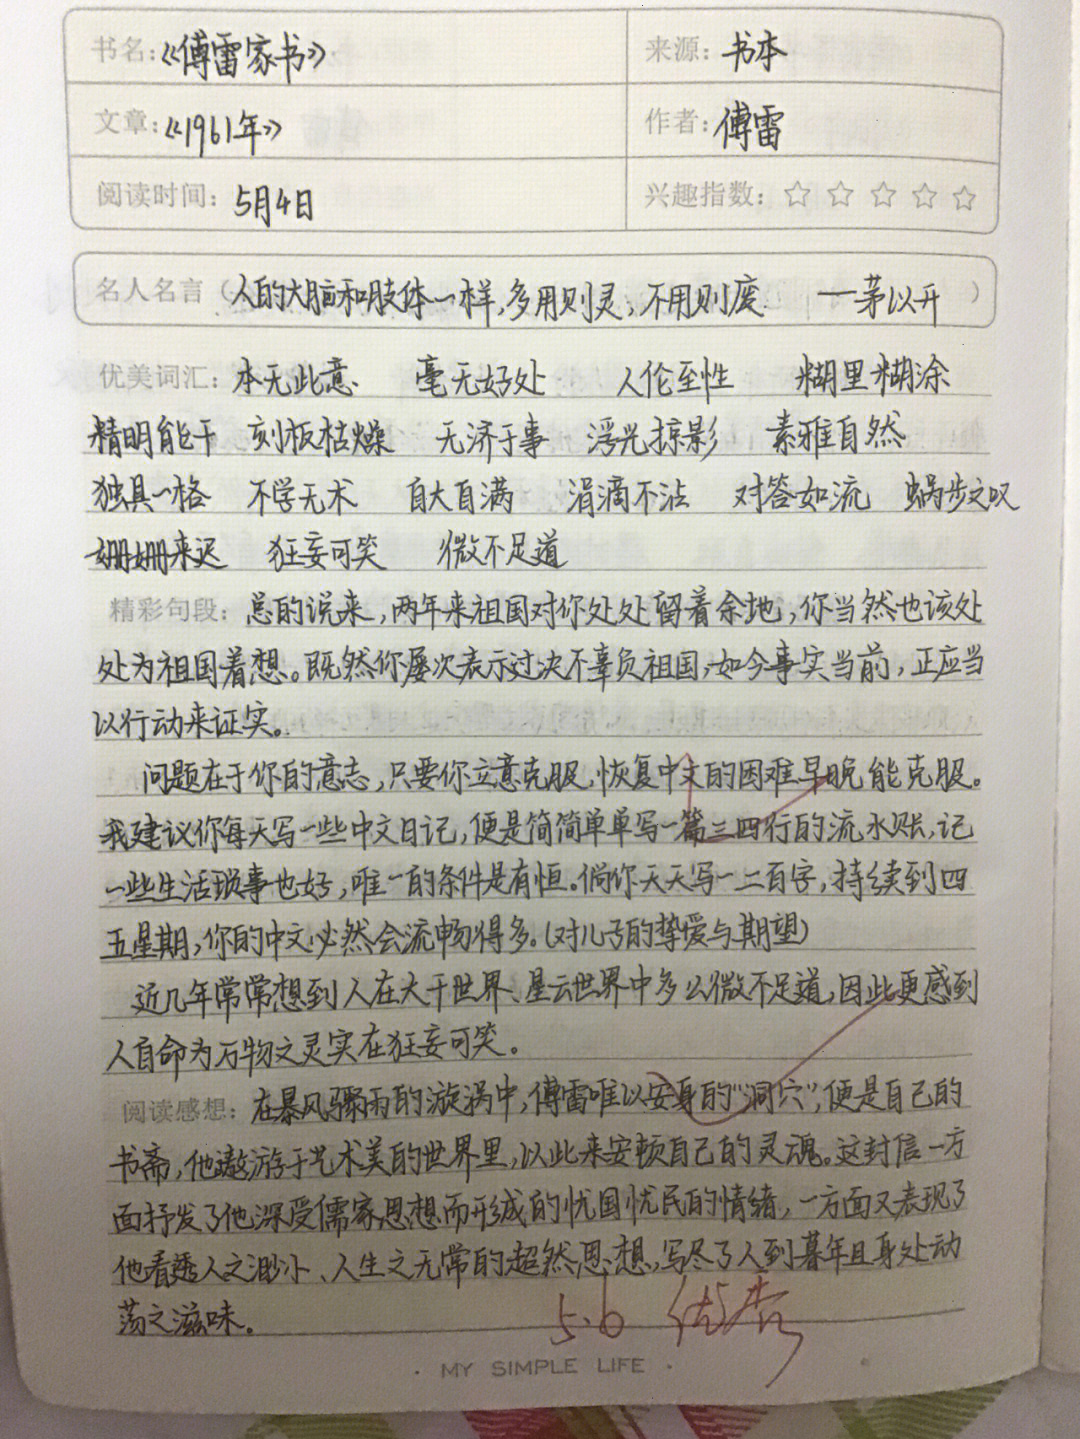 书名：《傅雷家书》 来源：书本
文章：《1961年》 作者：傅雷
阅读时间：5月4日 兴趣指数：☆ ☆ ☆ ☆ ☆
名人名言（人的大脑和肢体一样，多用则灵，不用则废. ——茅以升）
优美词汇：本无此意 毫无好处 人伦至性 糊里糊涂
精明能干 刻板枯燥 无济于事 浮光掠影 素雅自然
独具一格 不学无术 自大自满 涓滴不沾 对答如流 蜗步之叹
姗姗来迟 狂妄可笑 微不足道
精彩句段：总的说来，两年来祖国对你处处留着余地，你当然也该处
处为祖国着想。既然你屡次表示过决不辜负祖国，如今事实当前，正应当
以行动来证实。
问题在于你的意志，只要你立意克服，恢复中文的困难早晚能克服。
我建议你每天写一些中文日记，便是简简单单写一篇三四行的流水账，记
一些生活琐事也好，唯一的条件是有恒。倘你天天写一二百字，持续到四
五星期，你的中文必然会流畅得多。（对儿子的挚爱与期望）
近几年常常想到人在大千世界、星云世界中多么微不足道，因此更感到
人自命为万物之灵实在狂妄可笑。
阅读感想：在暴风骤雨的漩涡中，傅雷唯以安身的“洞穴”，便是自己的
书斋，他遨游于艺术美的世界里，以此来安顿自己的灵魂。这封信一方
面抒发了他深受儒家思想而形成的忧国忧民的情绪，一方面又表现了
他看透人之渺小、人生之无常的超然思想，写尽了人到暮年且身处动
荡之滋味。
5.6 优秀
· MY SIMPLE LIFE ·